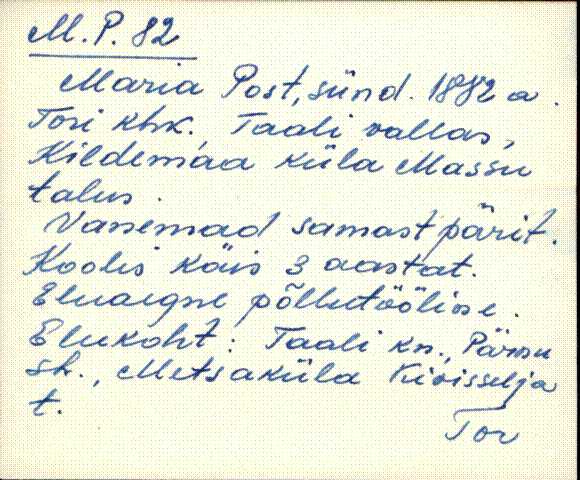 M.P. 82
Maria Post, sünd. 1882 a.
Tori khk. Taali vallas,
Kildemaa küla Massu
talus.
Vanemad samast pärit.
Koolis käis 3 aastat.
Eluaegne põllutööline.
Elukoht: Taali kn., Pärnu
sk., Metsaküla Kivisselja
t.
Tor